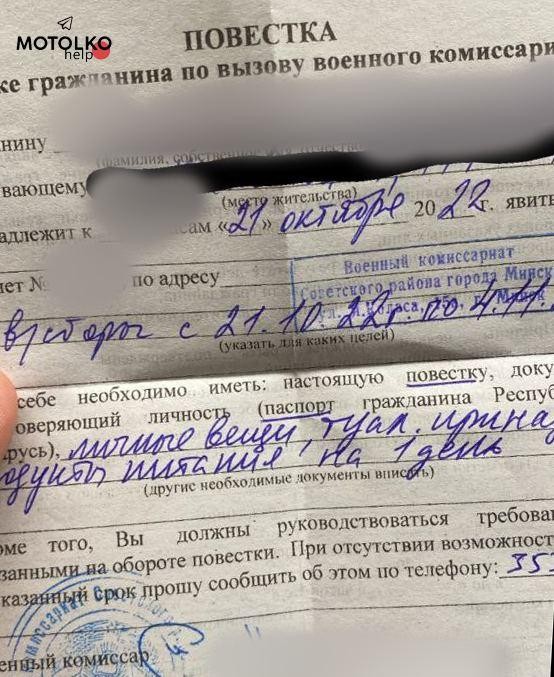 MOTOLKO
help
ПОВЕСТКА
ке гражданина по вызову военного комиссари
нину
(фамилия, собственное имя, отчество
вающему
(место жительства)
адлежит к
сам «21» октября 2022 г. явить
нет №
по адресу
Военный комиссариат
Советского района города Минск
в/сборы с 21.10.22г. по 4.11.
(указать для каких целей)
себе необходимо иметь: настоящую повестку, доку
оверяющий личность (паспорт гражданина Респуб
арусь), личные вещи, туал. принад
одукты питания на 1 день
(другие необходимые документы вписать)
оме того, Вы должны руководствоваться требова
занными на обороте повестки. При отсутствии возможност
казанный срок прошу сообщить об этом по телефону: 35
енный комиссар